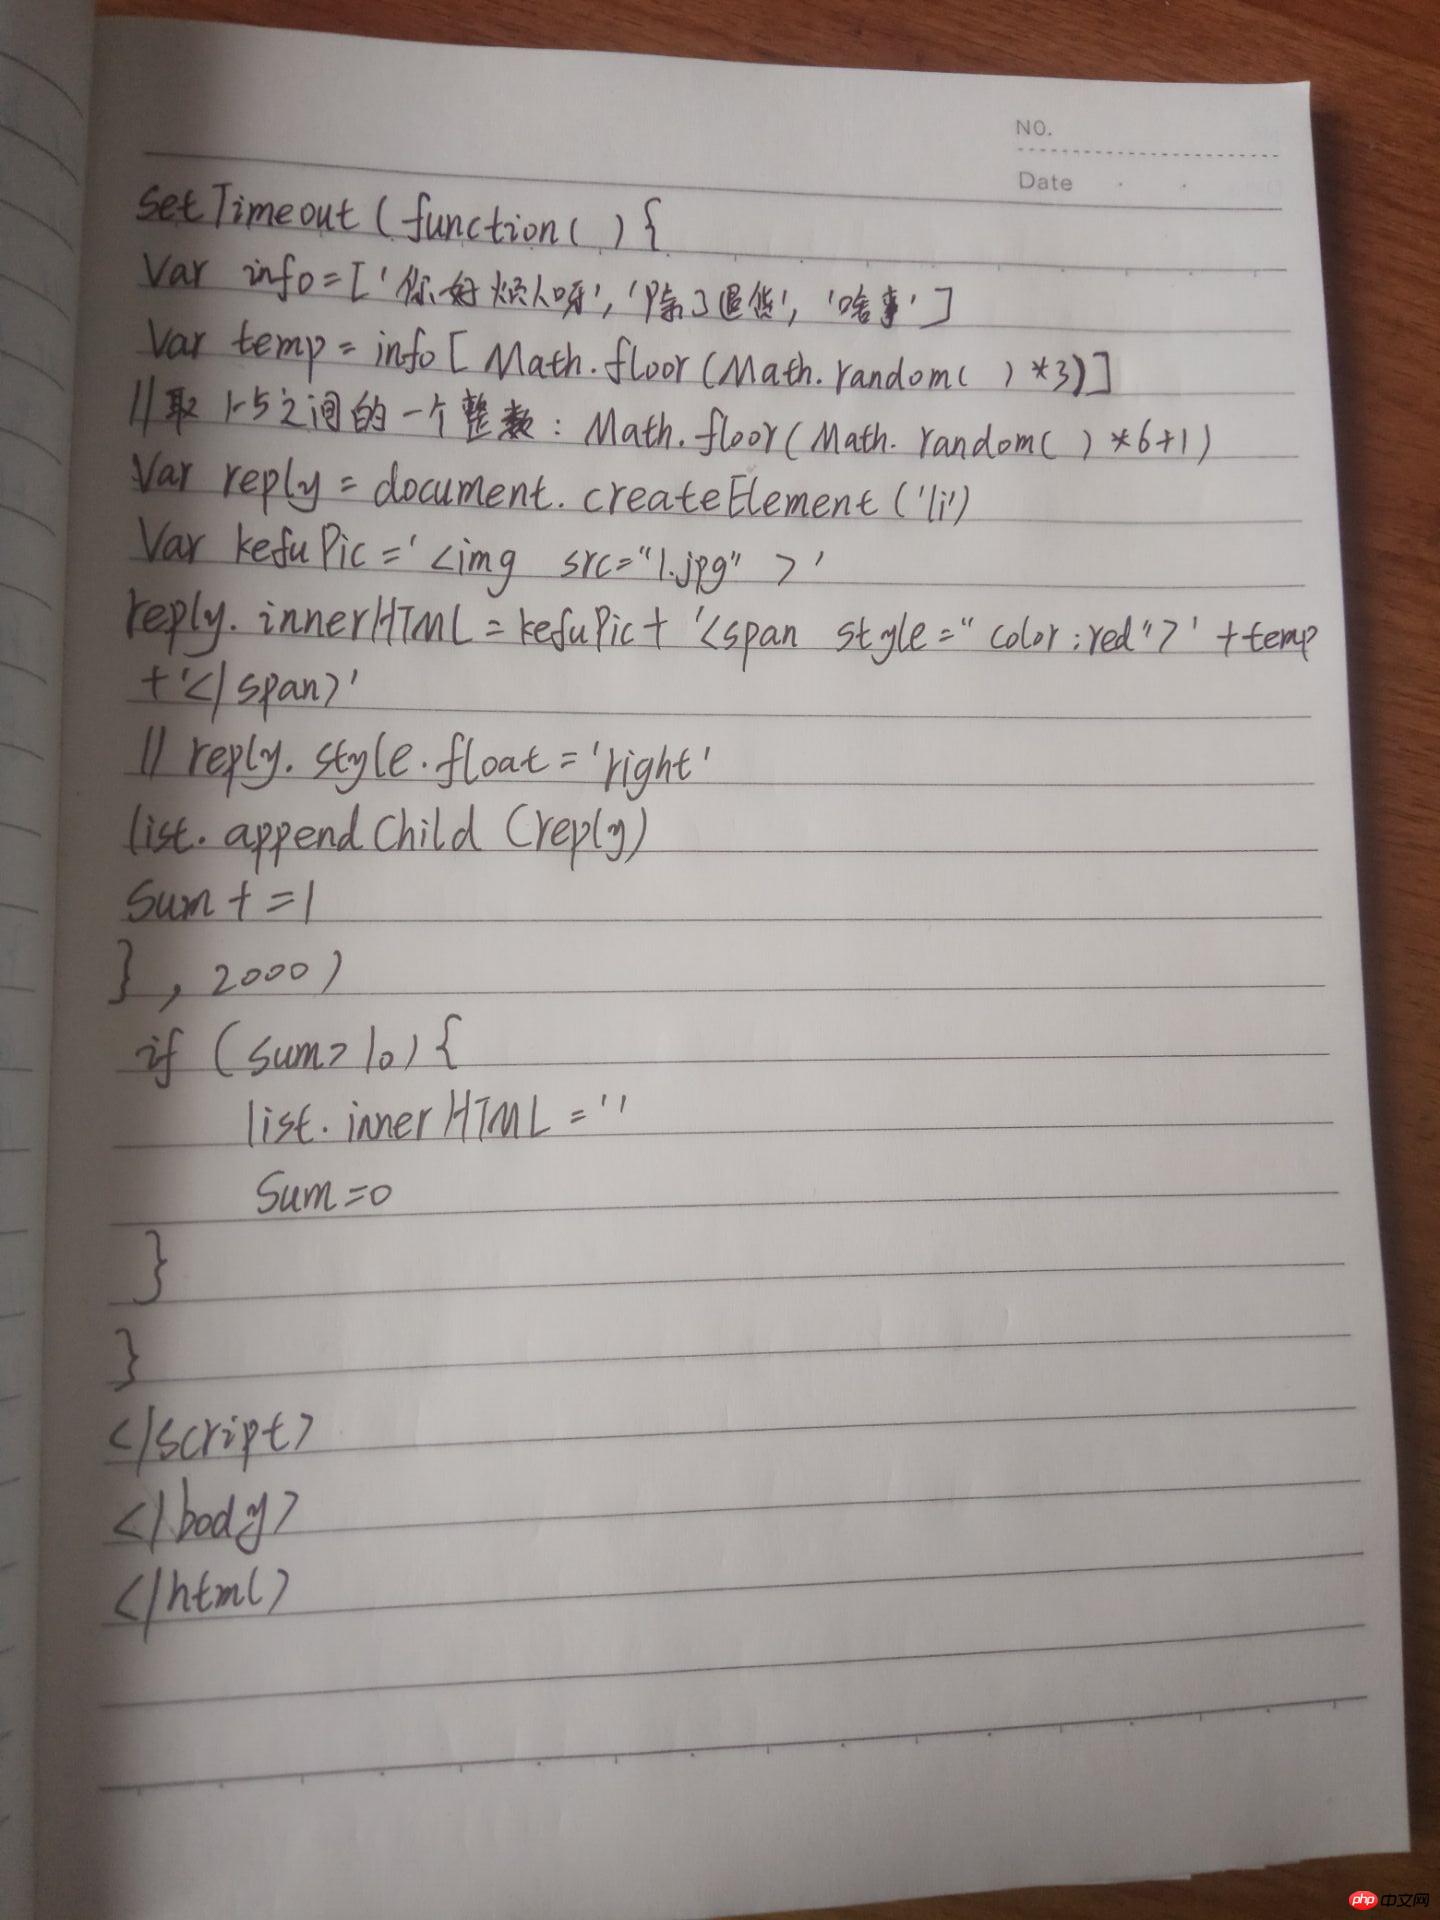 NO.
Date
setTimeout(function(){
Var info=['你好烦人呀','除了退货','啥事']
Var temp=info[Math.floor(Math.random()*3)]
//取1-5之间的一个整数:Math.floor(Math.random()*6+1)
Var reply=document.createElement('li')
Var kefuPic='<img src="1.jpg">'
reply.innerHTML=kefuPic+'<span style="color:red">'+temp
+'</span>'
//reply.style.float='right'
list.appendChild(reply)
Sum+=1
},2000)
if(sum>10){
list.innerHTML=''
Sum=0
}
}
</script>
</body>
</html>
php中文网